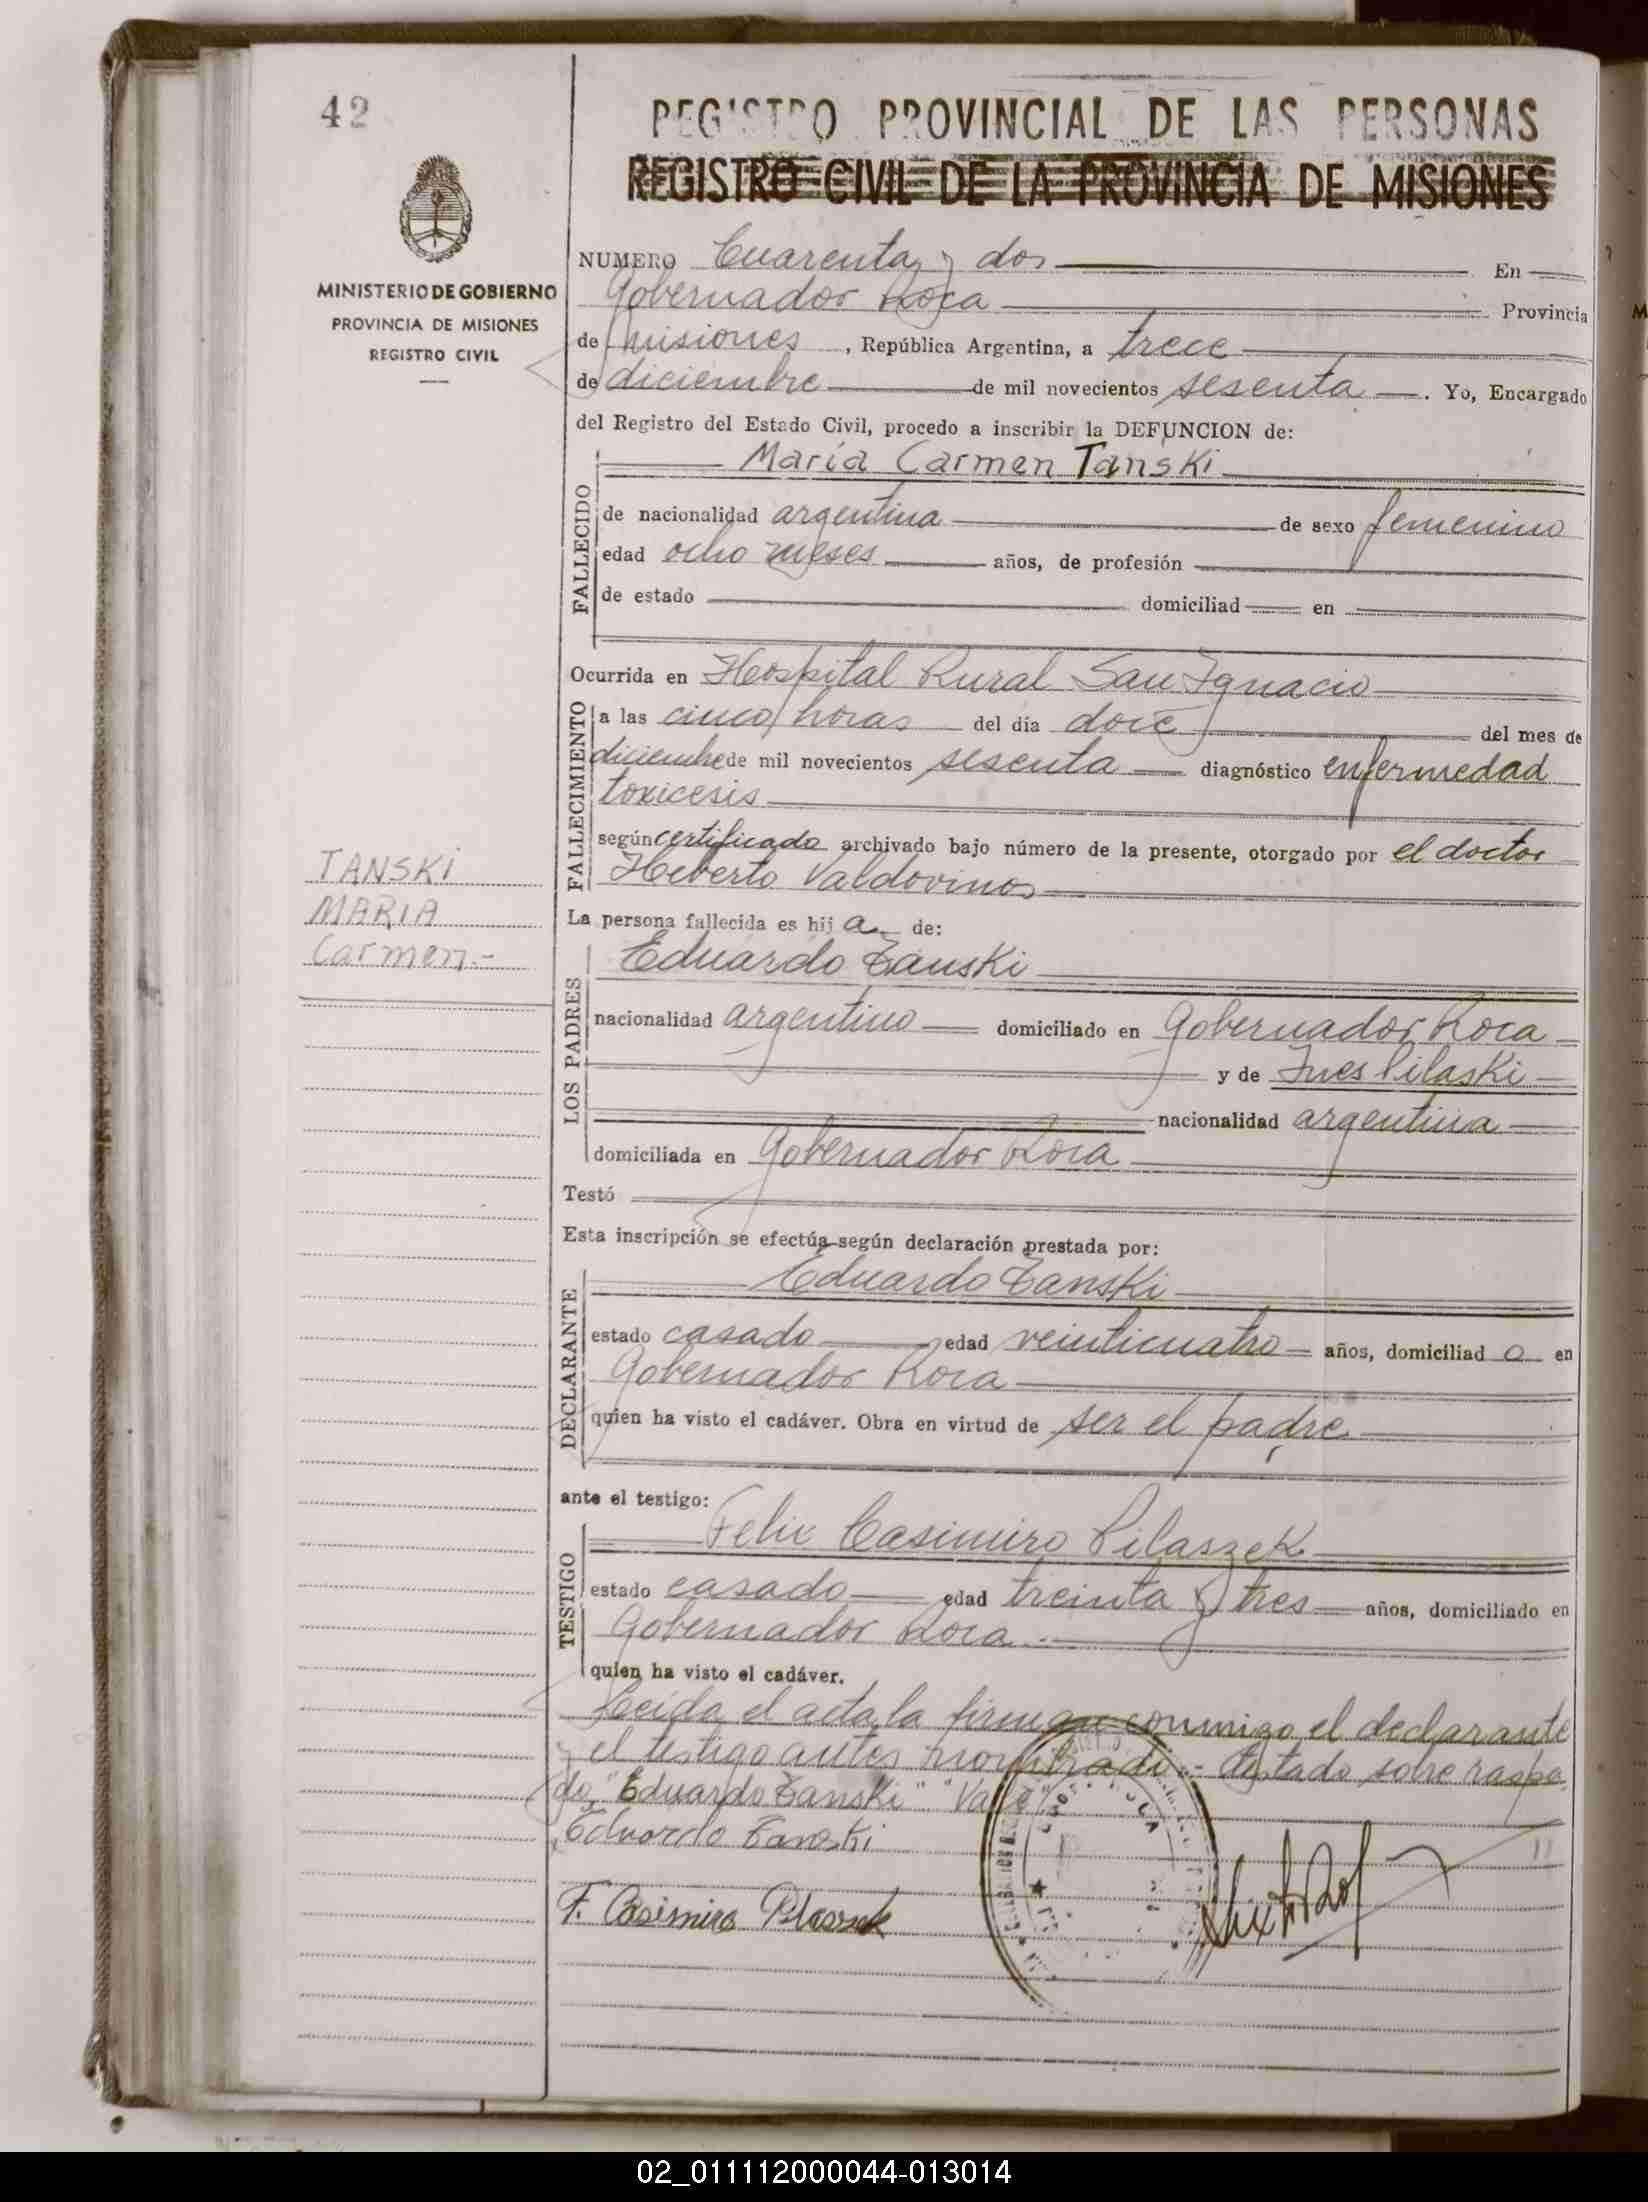 42
REGISTRO PROVINCIAL DE LAS PERSONAS
REGISTRO CIVIL DE LA PROVINCIA DE MISIONES
MINISTERIO DE GOBIERNO
PROVINCIA DE MISIONES
REGISTRO CIVIL
NUMERO Cuarenta y dos En
Gobernador Roca Provincia
de misiones, República Argentina, a trece
de diciembre de mil novecientos sesenta. Yo, Encargado
del Registro del Estado Civil, procedo a inscribir la DEFUNCION de:
Maria Carmen Tanski
FALLECIDO
de nacionalidad argentina de sexo femenino
edad ocho meses años, de profesión
de estado domiciliad en
Ocurrida en Hospital Rural San Ignacio
FALLECIMIENTO
a las cinco horas del día doce del mes de
diciembre de mil novecientos sesenta diagnóstico enfermedad
toxicesis
según certificado archivado bajo número de la presente, otorgado por el doctor
Heberto Valdovinos
TANSKI
MARIA
Carmen.-
La persona fallecida es hij a de:
LOS PADRES
Eduardo Tanski
nacionalidad argentino domiciliado en Gobernador Roca
y de Ines Pilaski
nacionalidad argentina
domiciliada en Gobernador Roca
Testó
Esta inscripción se efectúa según declaración prestada por:
DECLARANTE
Eduardo Tanski
estado casado edad veinticuatro años, domiciliad o en
Gobernador Roca
quien ha visto el cadáver. Obra en virtud de ser el padre
ante el testigo:
TESTIGO
Felix Casimiro Pilaszek
estado casado edad treinta y tres años, domiciliado en
Gobernador Roca.-
quien ha visto el cadáver.
Leida el acta la firman conmigo el declarante
y el testigo antes nombrado.- testado sobre raspa
do "Eduardo Tanski" "Vale"
Eduardo Tanski
F. Casimiro Pilaszek
02_011112000044-013014